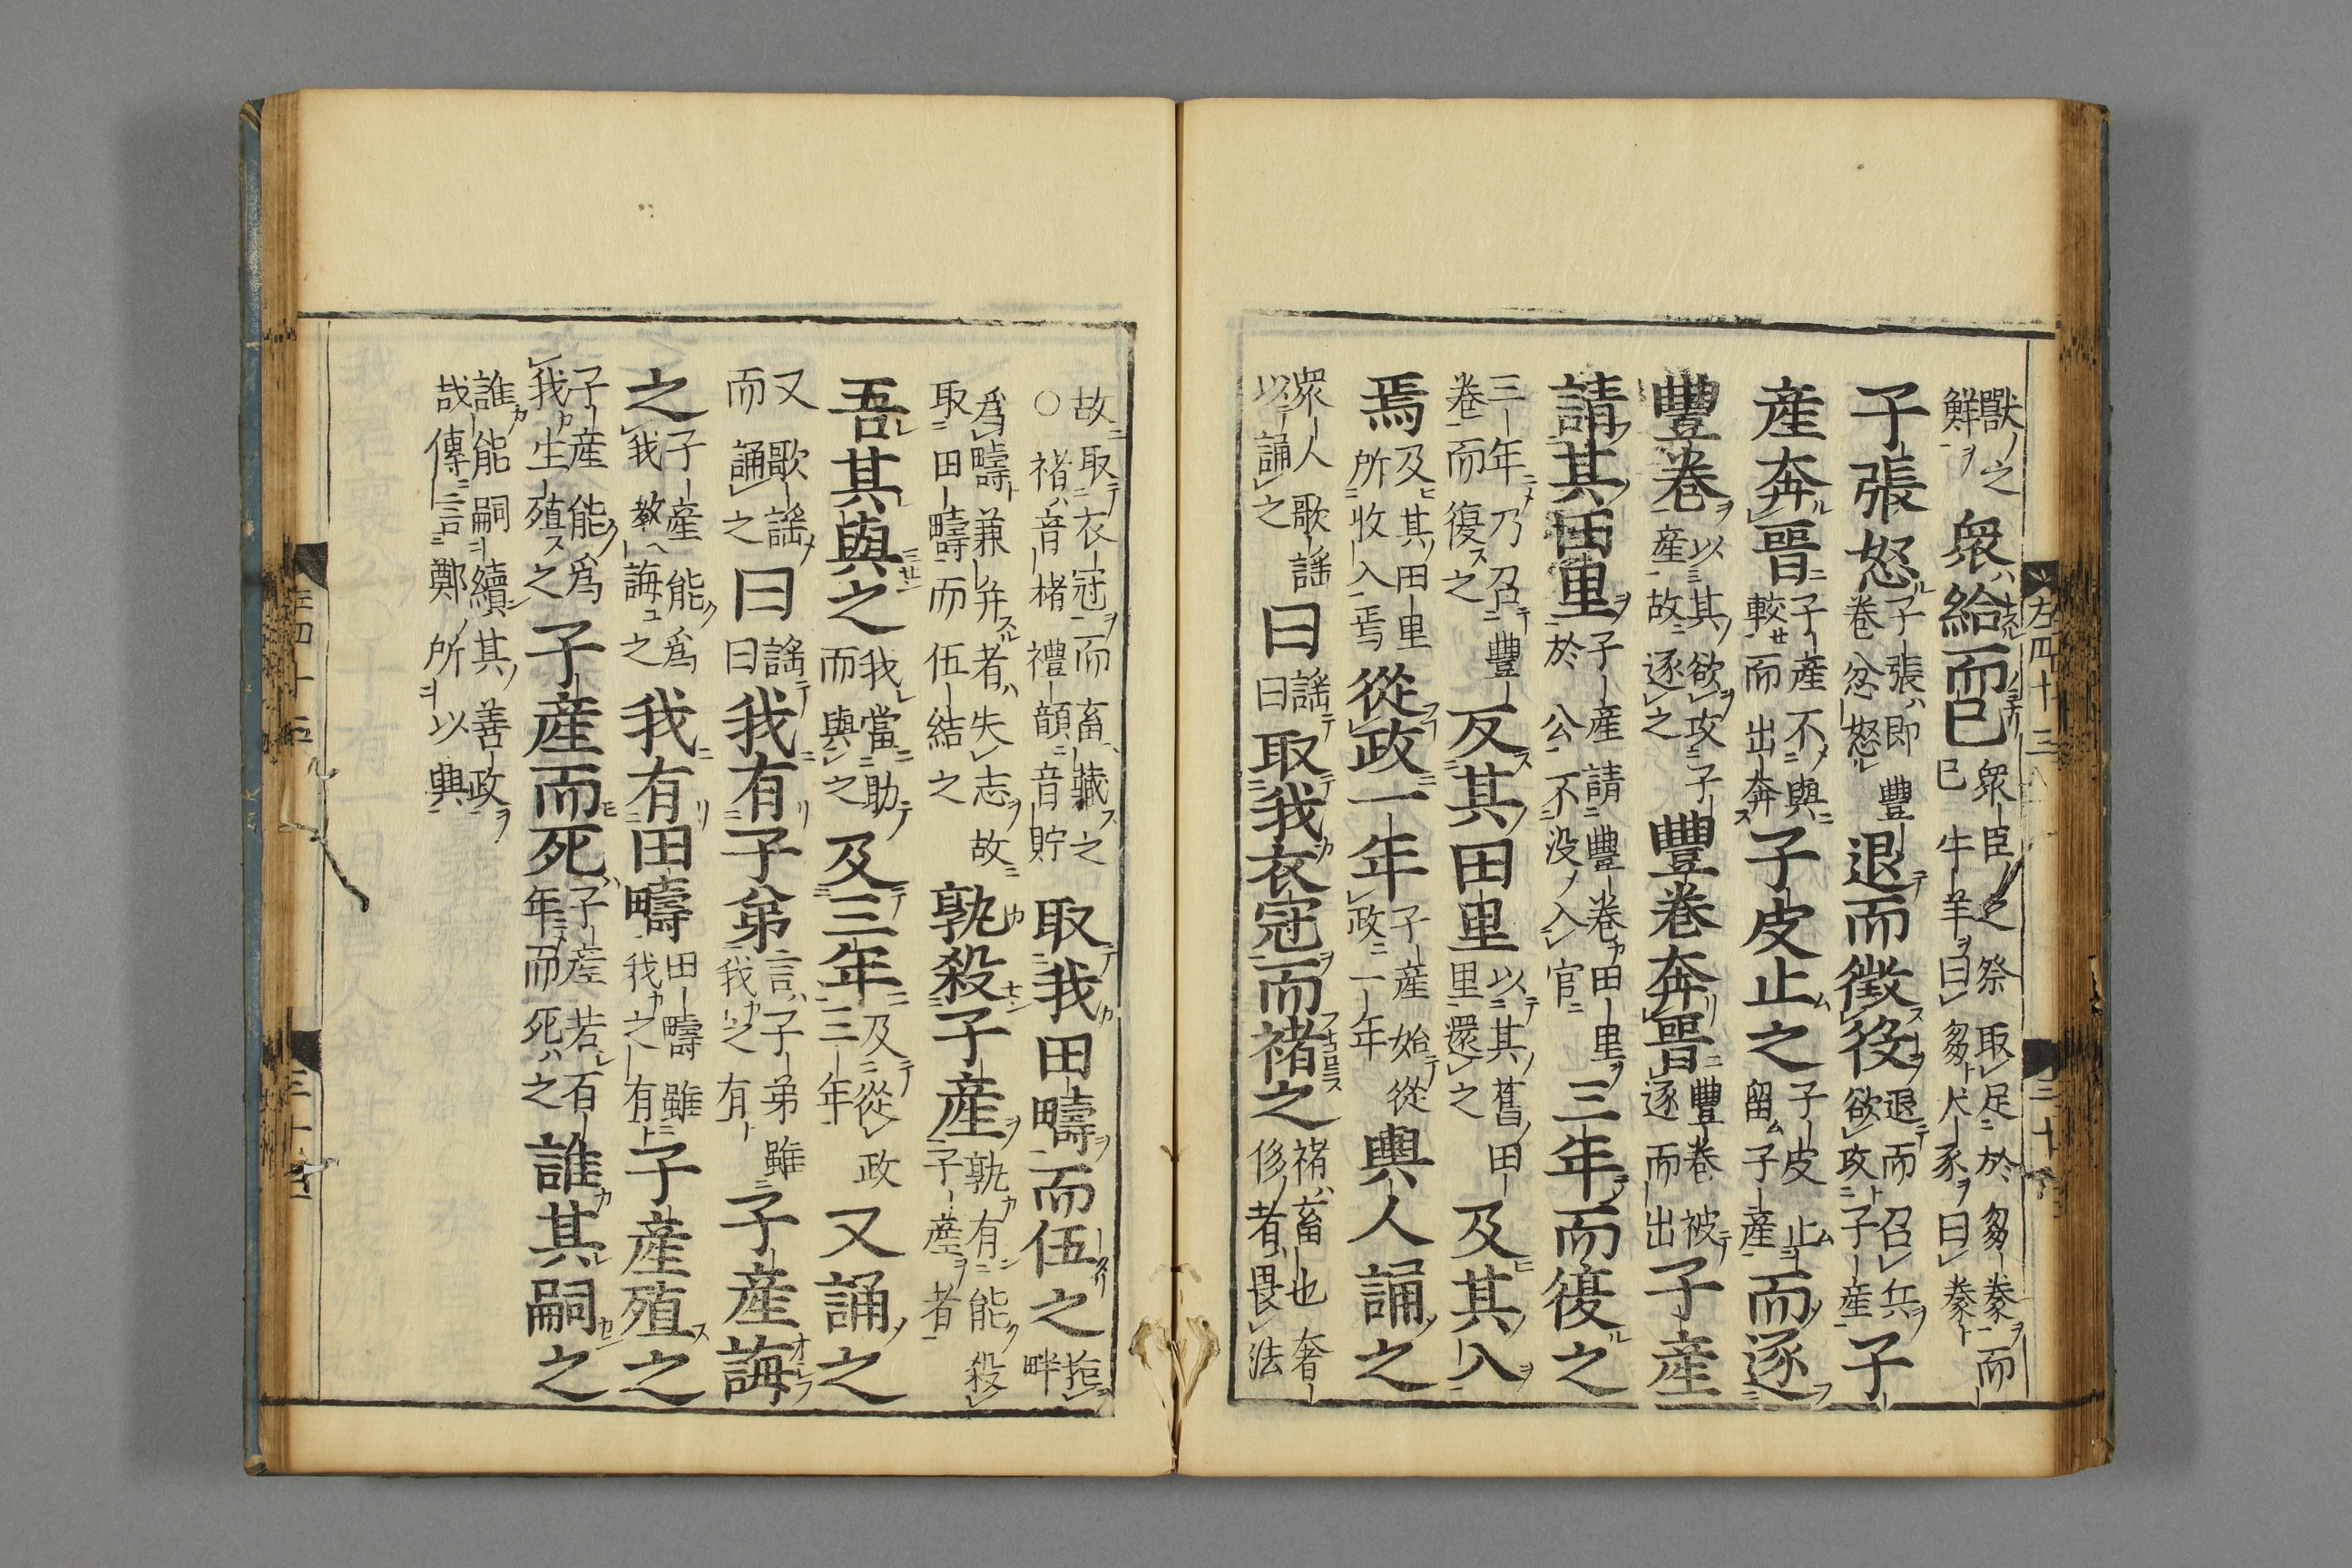 獸之鮮衆給而已衆臣之祭取足於芻豢而已牛羊曰芻犬豕曰豢
子張怒子張即豐卷忿怒退而徵役退而召兵欲攻子產子
産奔晉子産不與較而出奔子皮止之子皮止留子産而逐
豐卷以其欲攻子産故逐之豐卷奔晉豐卷被逐而出子産
請其田里子産請豐卷田里於公不没入官三年而復之
三年乃召豐卷而復之反其田里以其舊田里還之及其入
焉及其田里所收入焉從政一年子産始從政一年輿人誦之
衆人歌謡以誦之曰謡曰取我衣冠而褚之褚畜也奢侈者畏法
故取衣冠而畜藏之○褚音楮禮韻音貯取我田疇而伍之㧖畔
爲疇兼并者失志故取田疇而伍結之孰殺子産孰有能殺子産者
吾其與之我當助而與之及三年及從政三年又誦之
又歌謡而誦之曰謡曰我有子弟言子弟我之有雖子産誨
之子産能爲我教誨之我有田疇田疇雖我之有子産殖之
子産能爲我生殖之子産而死子産若百年而死之誰其嗣之
誰能嗣續其善政哉傳言鄭所以興
左四十三
三十